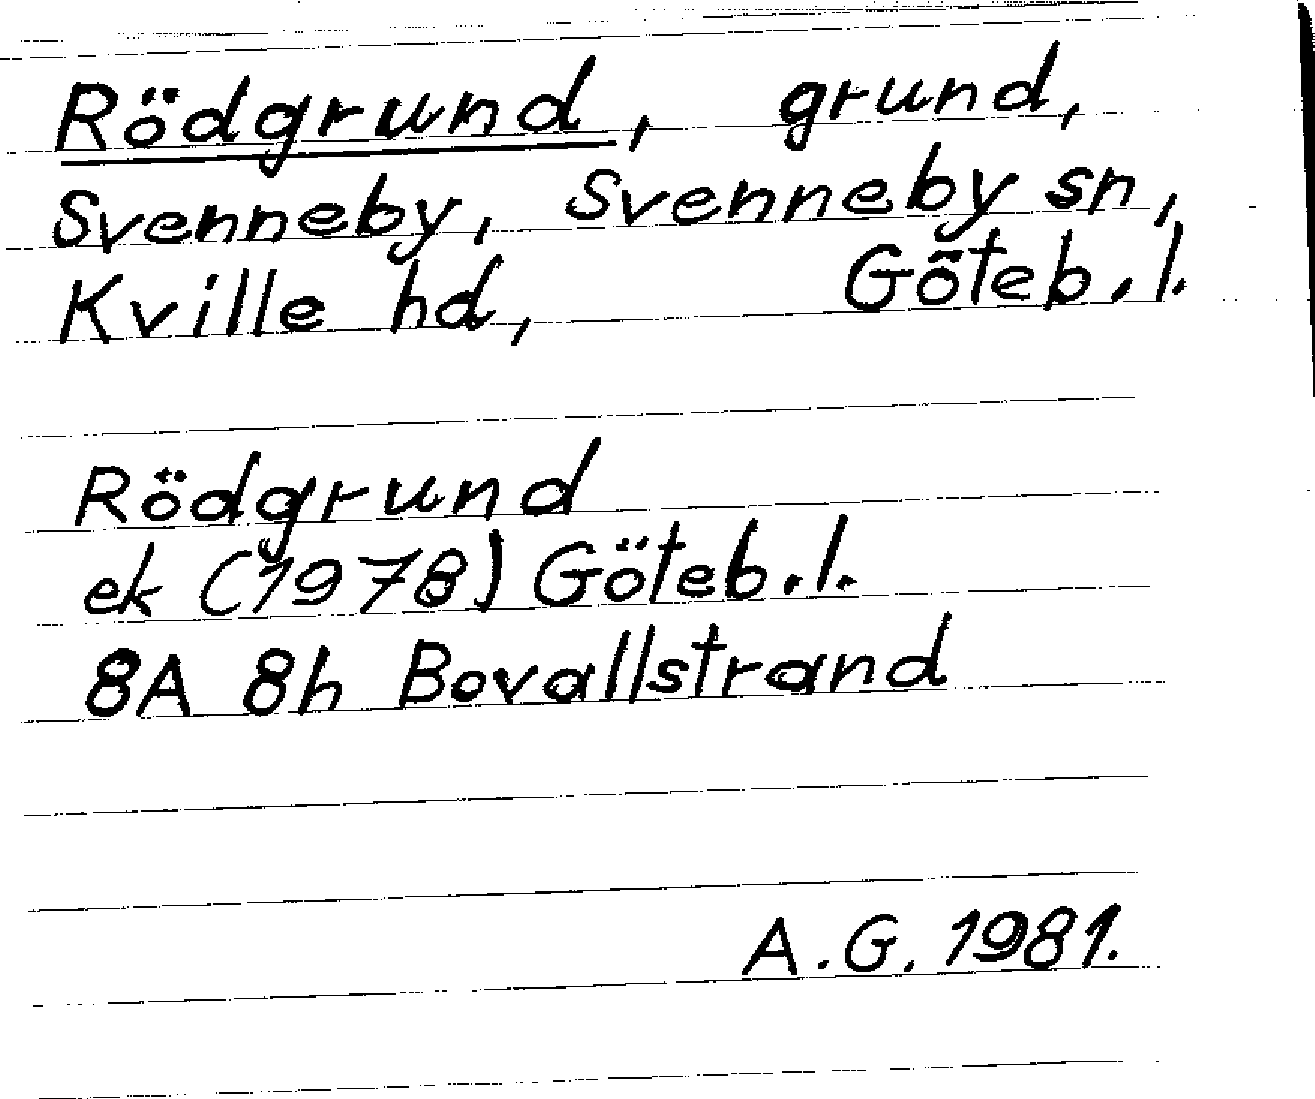 Rödgrund, grund,
Svenneby, Svenneby sn,
Kville hd, Göteb.l.
Rödgrund
ek (1978) Göteb.l.
8A 8h Bovallstrand
A.G. 1981.